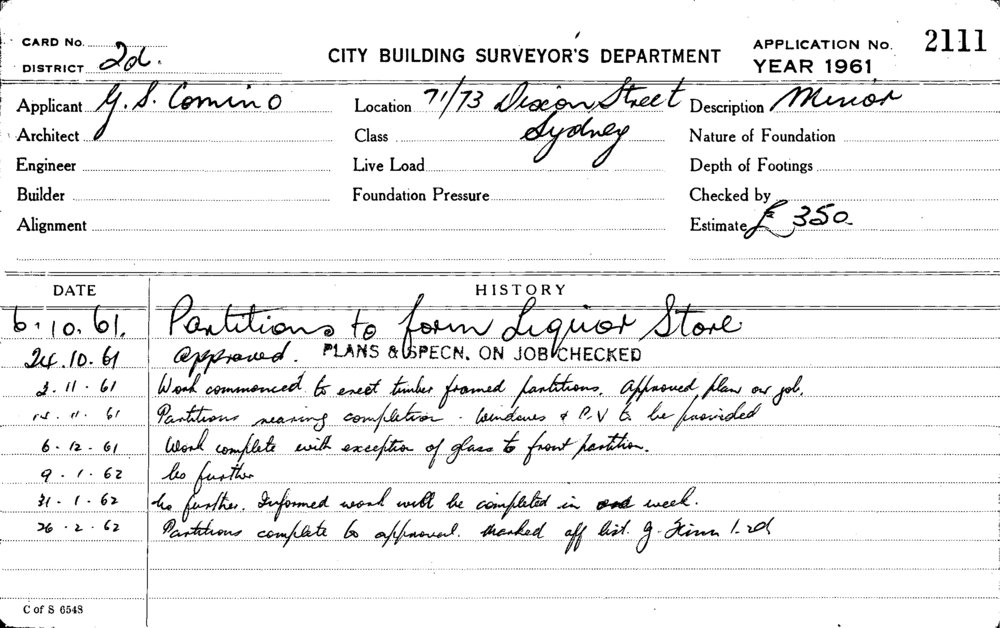 CARD No.
DISTRICT 2d.
CITY BUILDING SURVEYOR'S DEPARTMENT
APPLICATION No. 2111
YEAR 1961
Applicant G. S. Comino
Location 71/73 Dixon Street
Sydney
Description Minor
Architect
Class
Nature of Foundation
Engineer
Live Load
Depth of Footings
Builder
Foundation Pressure
Checked by
Alignment
Estimate £ 350
DATE HISTORY
6.10.61. Partitions to form Liquor Store
24.10.61 Approved. PLANS & SPECN. ON JOB CHECKED
2.11.61 Work commenced to erect timber framed partitions. Approved plan on job.
11.61 Partitions nearing completion. Windows & P.V to be provided
6-12-61 Work complete with exception of glass to front partition.
9.1.62 No further
31.1.62 No further. Informed work will be completed in one week.
26.2.62 Partitions complete to approval. Marked off list.
C of S 6548